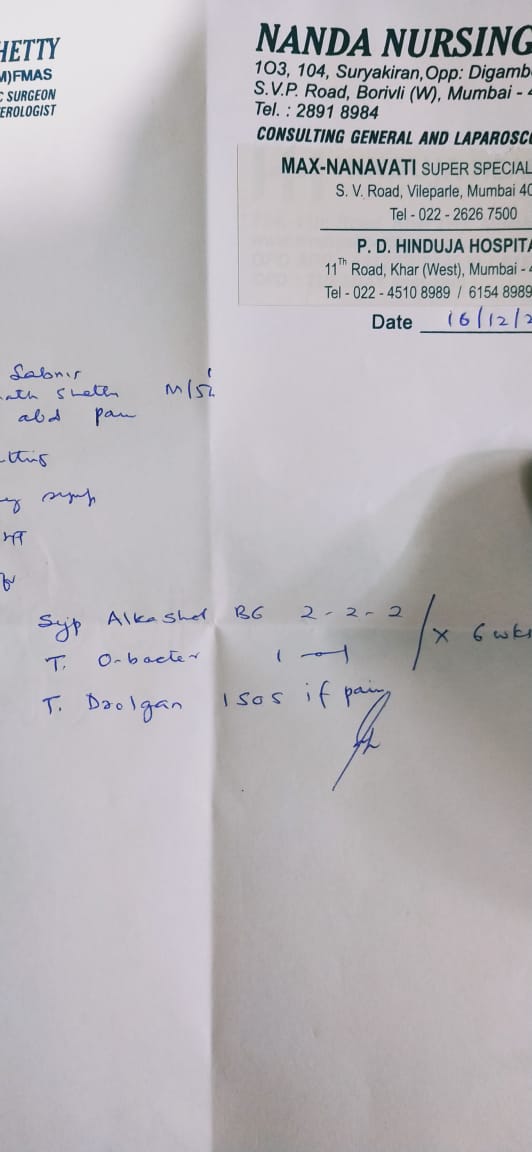 HETTY
M)FMAS
C SURGEON
EROLOGIST
NANDA NURSING
103, 104, Suryakiran, Opp: Digamb
S.V.P. Road, Borivli (W), Mumbai - 4
Tel. : 2891 8984
CONSULTING GENERAL AND LAPAROSCO
MAX-NANAVATI SUPER SPECIAL
S. V. Road, Vileparle, Mumbai 40
Tel - 022 - 2626 7500
P. D. HINDUJA HOSPITA
11Th Road, Khar (West), Mumbai - 4
Tel - 022 - 4510 8989 / 6154 8989
Date 16/12/2
Sabnis
ath Sheth M/52
abd pain
Syp Alkashol B6 2-2-2
x 6 wks
T. O-bacter 1
T. Dolgan 1 sos if pain